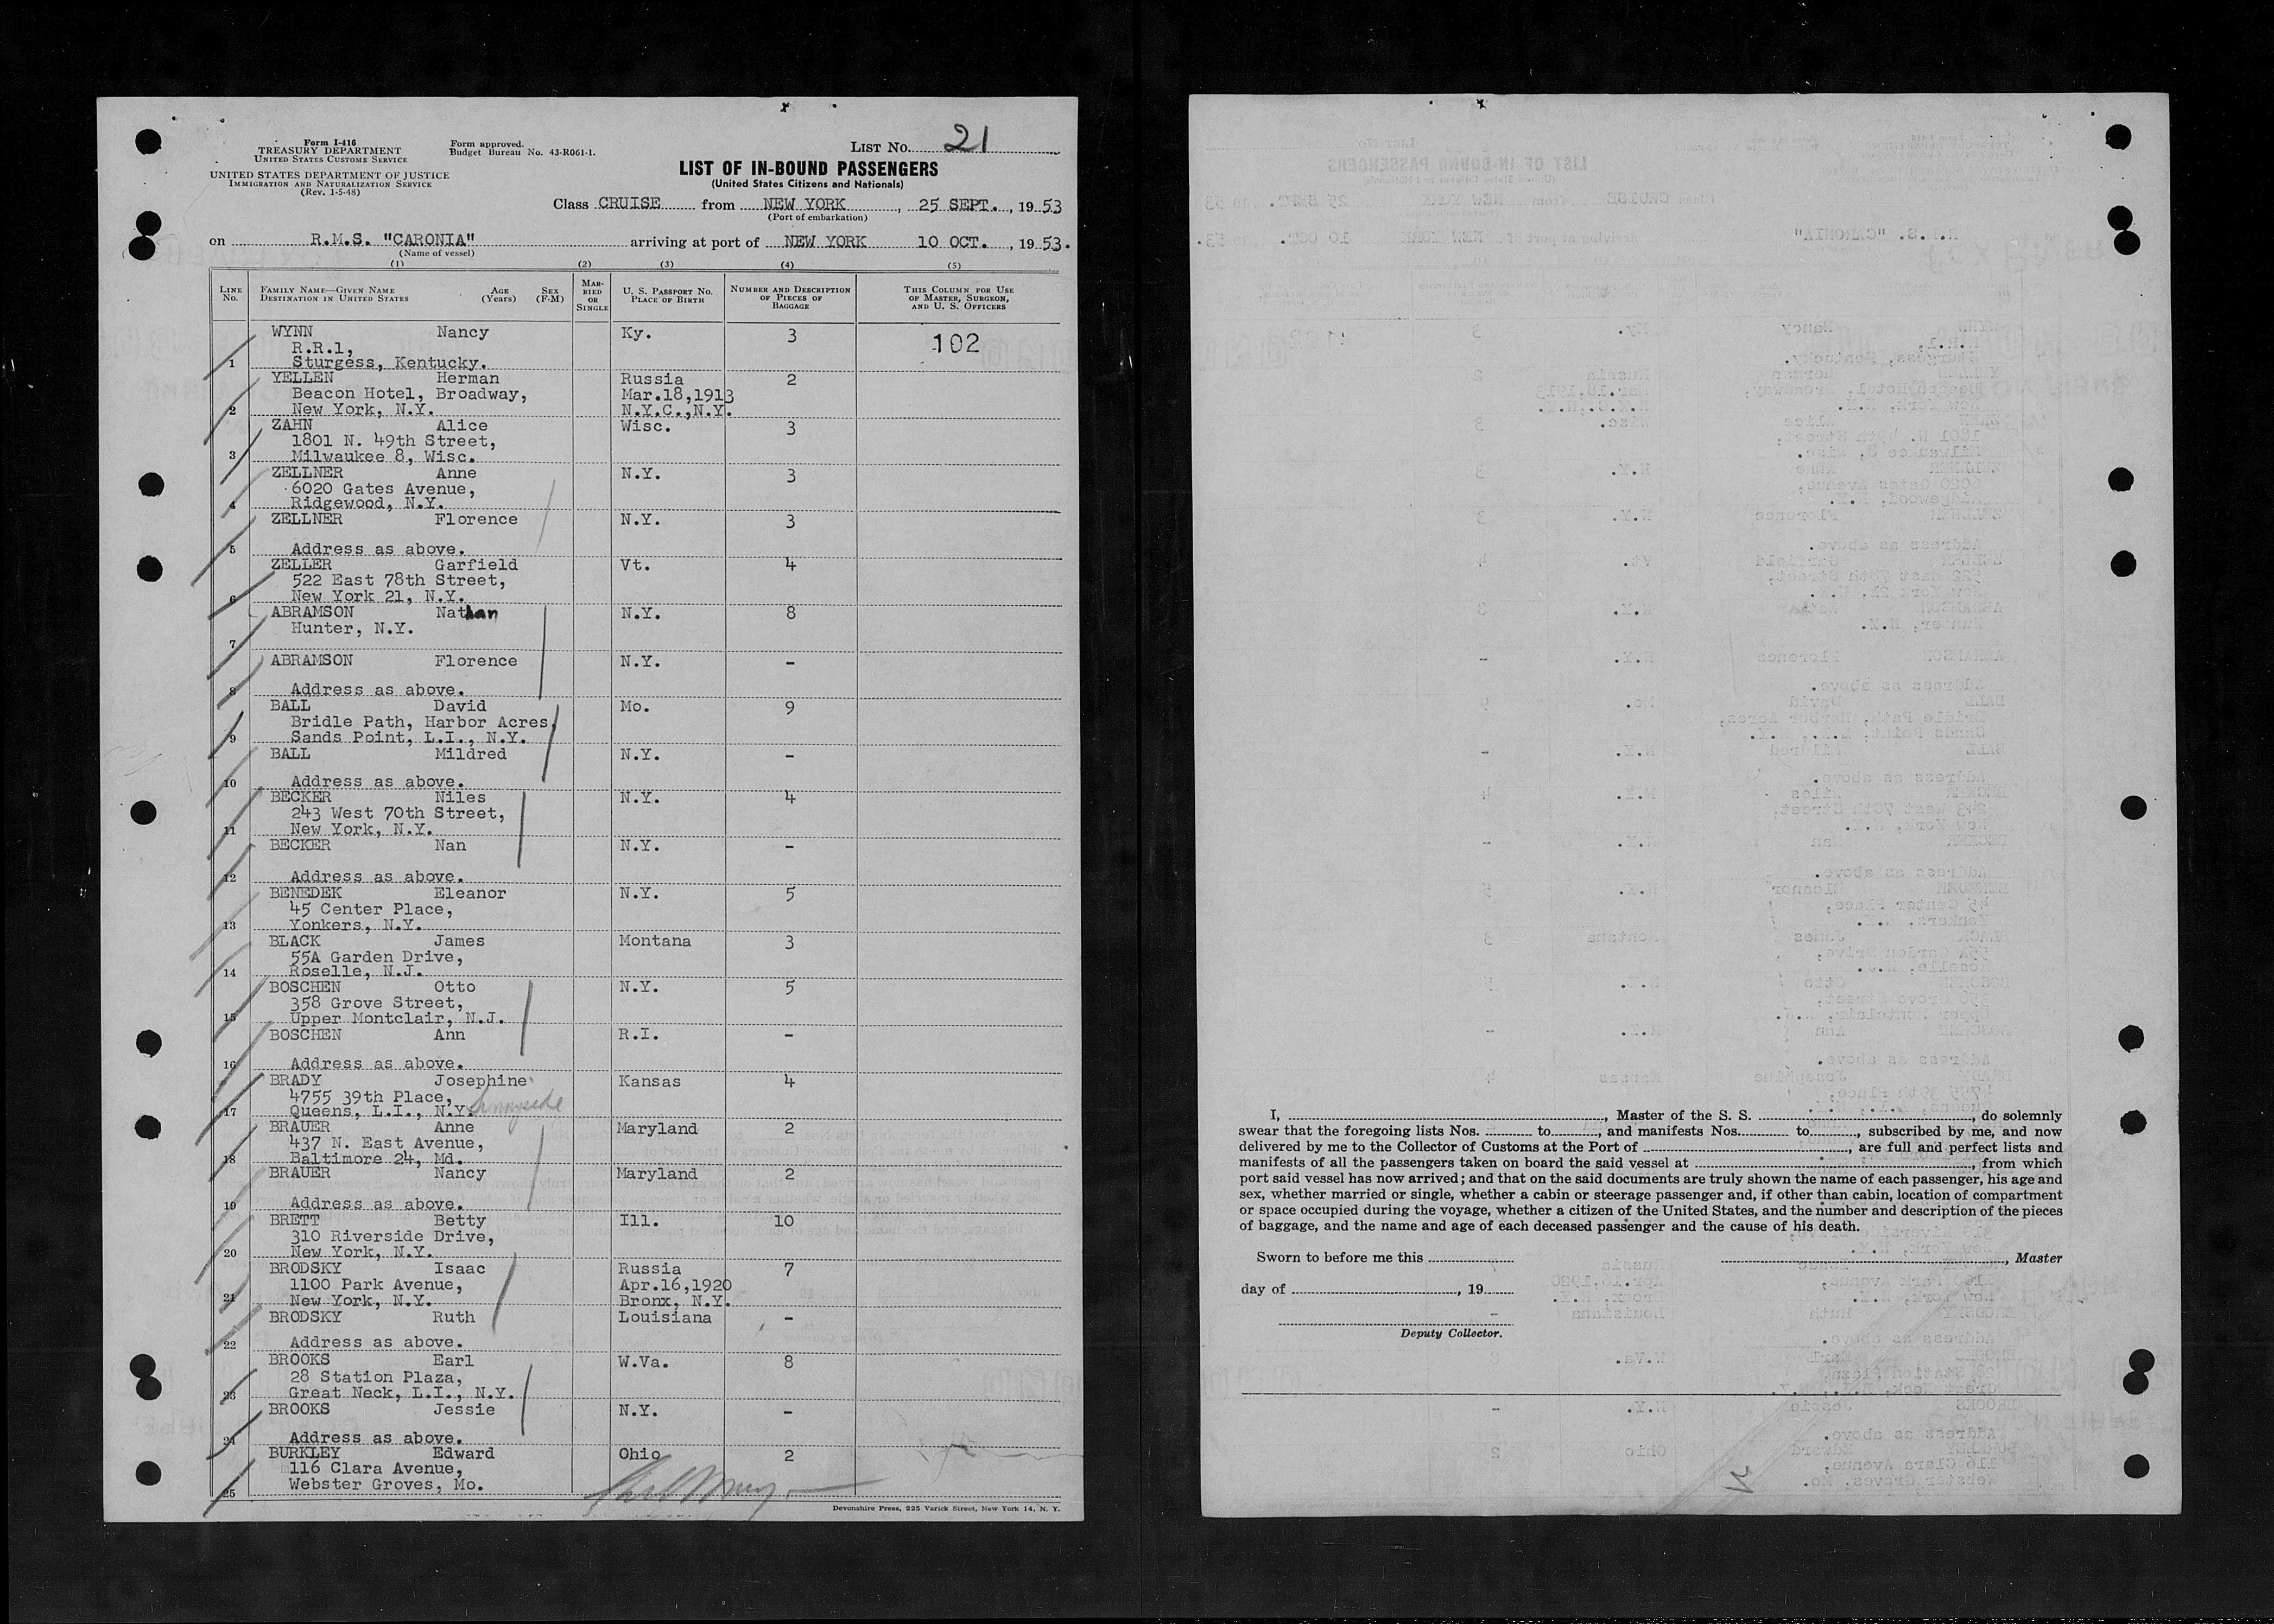 Form I-416
TREASURY DEPARTMENT
UNITED STATES CUSTOMS SERVICE
Form approved.
Budget Bureau No. 43-R061-1.
LIST No. 21
UNITED STATES DEPARTMENT OF JUSTICE
IMMIGRATION AND NATURALIZATION SERVICE
(Rev. 1-5-48)
LIST OF IN-BOUND PASSENGERS
(United States Citizens and Nationals)
Class CRUISE from NEW YORK, 25 SEPT., 19 53
(Port of embarkation)
on R.M.S. "CARONIA" arriving at port of NEW YORK 10 OCT., 19 53.
(Name of vessel)
(1) (2) (3) (4) (5)
LINE No. FAMILY NAME—GIVEN NAME DESTINATION IN UNITED STATES AGE (Years) SEX (F-M) MARRIED OR SINGLE U. S. PASSPORT No. PLACE OF BIRTH NUMBER AND DESCRIPTION OF PIECES OF BAGGAGE THIS COLUMN FOR USE OF MASTER, SURGEON, AND U. S. OFFICERS
WYNN Nancy Ky. 3 102
R.R.1,
1 Sturgess, Kentucky.
YELLEN Herman Russia 2
Beacon Hotel, Broadway, Mar.18,1913
2 New York, N.Y. N.Y.C.,N.Y.
ZAHN Alice Wisc. 3
1801 N. 49th Street,
3 Milwaukee 8, Wisc.
ZELLNER Anne N.Y. 3
6020 Gates Avenue,
4 Ridgewood, N.Y.
ZELLNER Florence N.Y. 3
5 Address as above.
ZELLER Garfield Vt. 4
522 East 78th Street,
6 New York 21, N.Y.
ABRAMSON Nathan N.Y. 8
Hunter, N.Y.
7
ABRAMSON Florence N.Y. -
8 Address as above.
BALL David Mo. 9
Bridle Path, Harbor Acres,
9 Sands Point, L.I., N.Y.
BALL Mildred N.Y. -
10 Address as above.
BECKER Niles N.Y. 4
243 West 70th Street,
11 New York, N.Y.
BECKER Nan N.Y. -
12 Address as above.
BENEDEK Eleanor N.Y. 5
45 Center Place,
13 Yonkers, N.Y.
BLACK James Montana 3
55A Garden Drive,
14 Roselle, N.J.
BOSCHEN Otto N.Y. 5
358 Grove Street,
15 Upper Montclair, N.J.
BOSCHEN Ann R.I. -
16 Address as above.
BRADY Josephine Kansas 4
4755 39th Place,
17 Queens, L.I., N.Y. Sunnyside
BRAUER Anne Maryland 2
437 N. East Avenue,
18 Baltimore 24, Md.
BRAUER Nancy Maryland 2
19 Address as above.
BRETT Betty Ill. 10
310 Riverside Drive,
20 New York, N.Y.
BRODSKY Isaac Russia 7
1100 Park Avenue, Apr.16,1920
21 New York, N.Y. Bronx, N.Y.
BRODSKY Ruth Louisiana -
22 Address as above.
BROOKS Earl W.Va. 8
28 Station Plaza,
23 Great Neck, L.I., N.Y.
BROOKS Jessie N.Y. -
24 Address as above.
BURKLEY Edward Ohio 2
116 Clara Avenue,
25 Webster Groves, Mo.
Devonshire Press, 225 Varick Street, New York 14, N. Y.
I, , Master of the S. S. , do solemnly
swear that the foregoing lists Nos. to , and manifests Nos. to , subscribed by me, and now
delivered by me to the Collector of Customs at the Port of , are full and perfect lists and
manifests of all the passengers taken on board the said vessel at , from which
port said vessel has now arrived; and that on the said documents are truly shown the name of each passenger, his age and
sex, whether married or single, whether a cabin or steerage passenger and, if other than cabin, location of compartment
or space occupied during the voyage, whether a citizen of the United States, and the number and description of the pieces
of baggage, and the name and age of each deceased passenger and the cause of his death.
Sworn to before me this , Master
day of , 19
Deputy Collector.